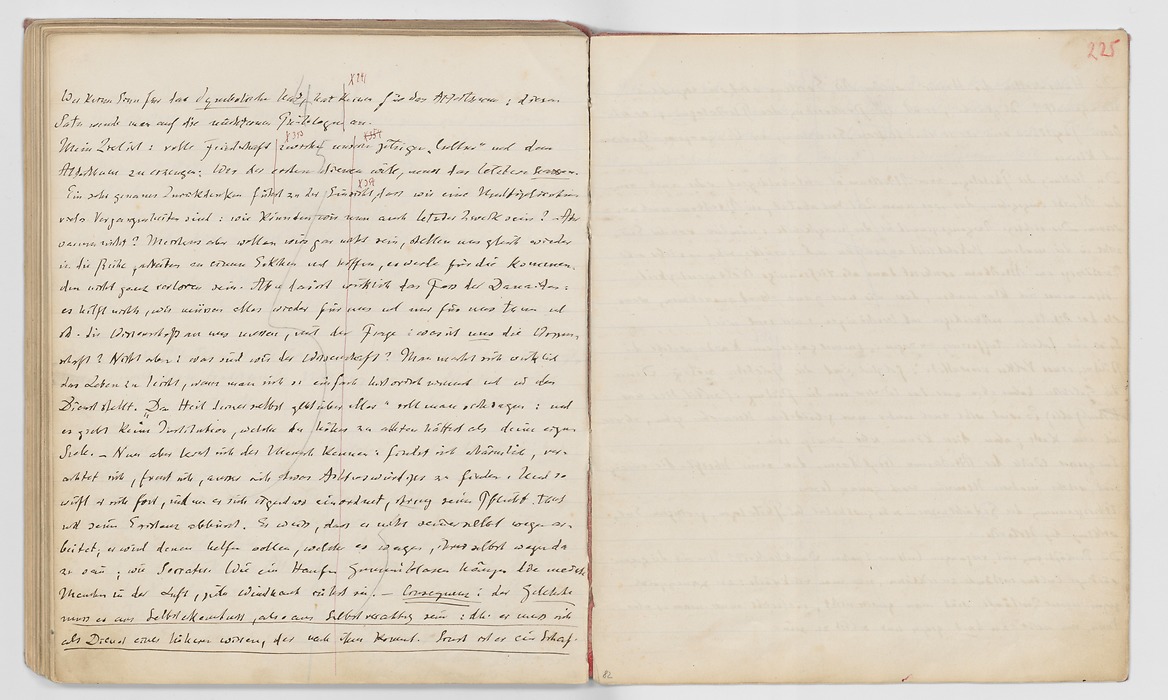 225
X 341
Wer keinen Sinn für das Symbolische hat, hat keinen für das Alterthum: diesen
Satz wende man auf die nüchternen Philologen an.
X 313
Mein Ziel ist: volle Feindschaft zwischen unserer jetzigen „Cultur“ und dem
Alterthum zu erzeugen. Wer der ersten dienen will, muss das letztere hassen.
Ein sehr genaues Zurückdenken führt zu der Einsicht, dass wir eine Multiplication
vieler Vergangenheiten sind: wie könnten wir nun auch letzter Zweck sein? – Aber
warum nicht? Meistens aber wollen wirs gar nicht sein, stellen uns gleich wieder
in die Reihe, arbeiten an einem Eckchen und hoffen, es werde für die Kommen-
den nicht ganz verloren sein. Aber das ist wirklich das Fass der Danaiden:
es hilft nichts, wir müssen alles wieder für uns und nur für uns thun und
die Wissenschaft an uns messen, mit der Frage: was ist uns die Wissen-
schaft? Nicht aber: was sind wir der Wissenschaft? Man macht sich wirklich
das Leben zu leicht, wenn man sich so einfach historisch nimmt und in den
Dienst stellt. „Das Heil deiner selbst geht über alles“ soll man sich sagen: und
es giebt keine Institution, welche du höher zu achten hättest als deine eigne
Seele. – Nun aber lernt sich der Mensch kennen: findet sich erbärmlich, ver-
achtet sich, freut sich, ausser sich etwas Achtenswürdiges zu finden. Und so
wirft er sich fort, indem er sich irgendwo einordnet, streng seine Pflicht thut
und seine Existenz abbüsst. Er weiss, dass er nicht seiner selbst wegen ar-
beitet; er wird denen helfen wollen, welche es wagen, ihrer selbst wegen da
zu sein; wie Socrates. Wie ein Haufen Gummiblasen hängen die meisten
Menschen in der Luft, jeder Windhauch rührt sie. – Consequenz: der Gelehrte
muss es aus Selbsterkenntniss, also aus Selbstverachtung sein: dh. er muss sich
als Diener eines höheren wissen, der nach ihm kommt. Sonst ist er ein Schaf.
82